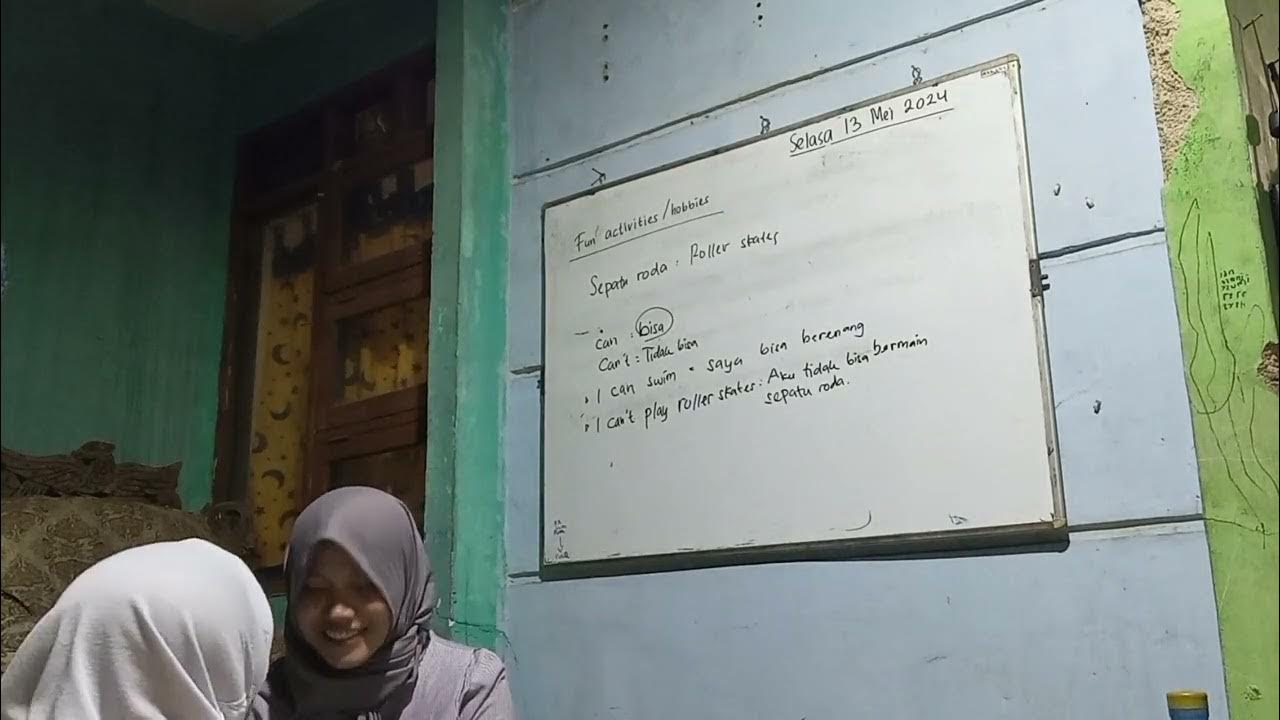 Selasa 13 Mei 2024
Fun activities/hobbies
Sepatu roda : Roller skates
- can : bisa
Can't = Tidak bisa
• I can swim = saya bisa berenang
• I can't play roller skates : Aku tidak bisa bermain
sepatu roda.